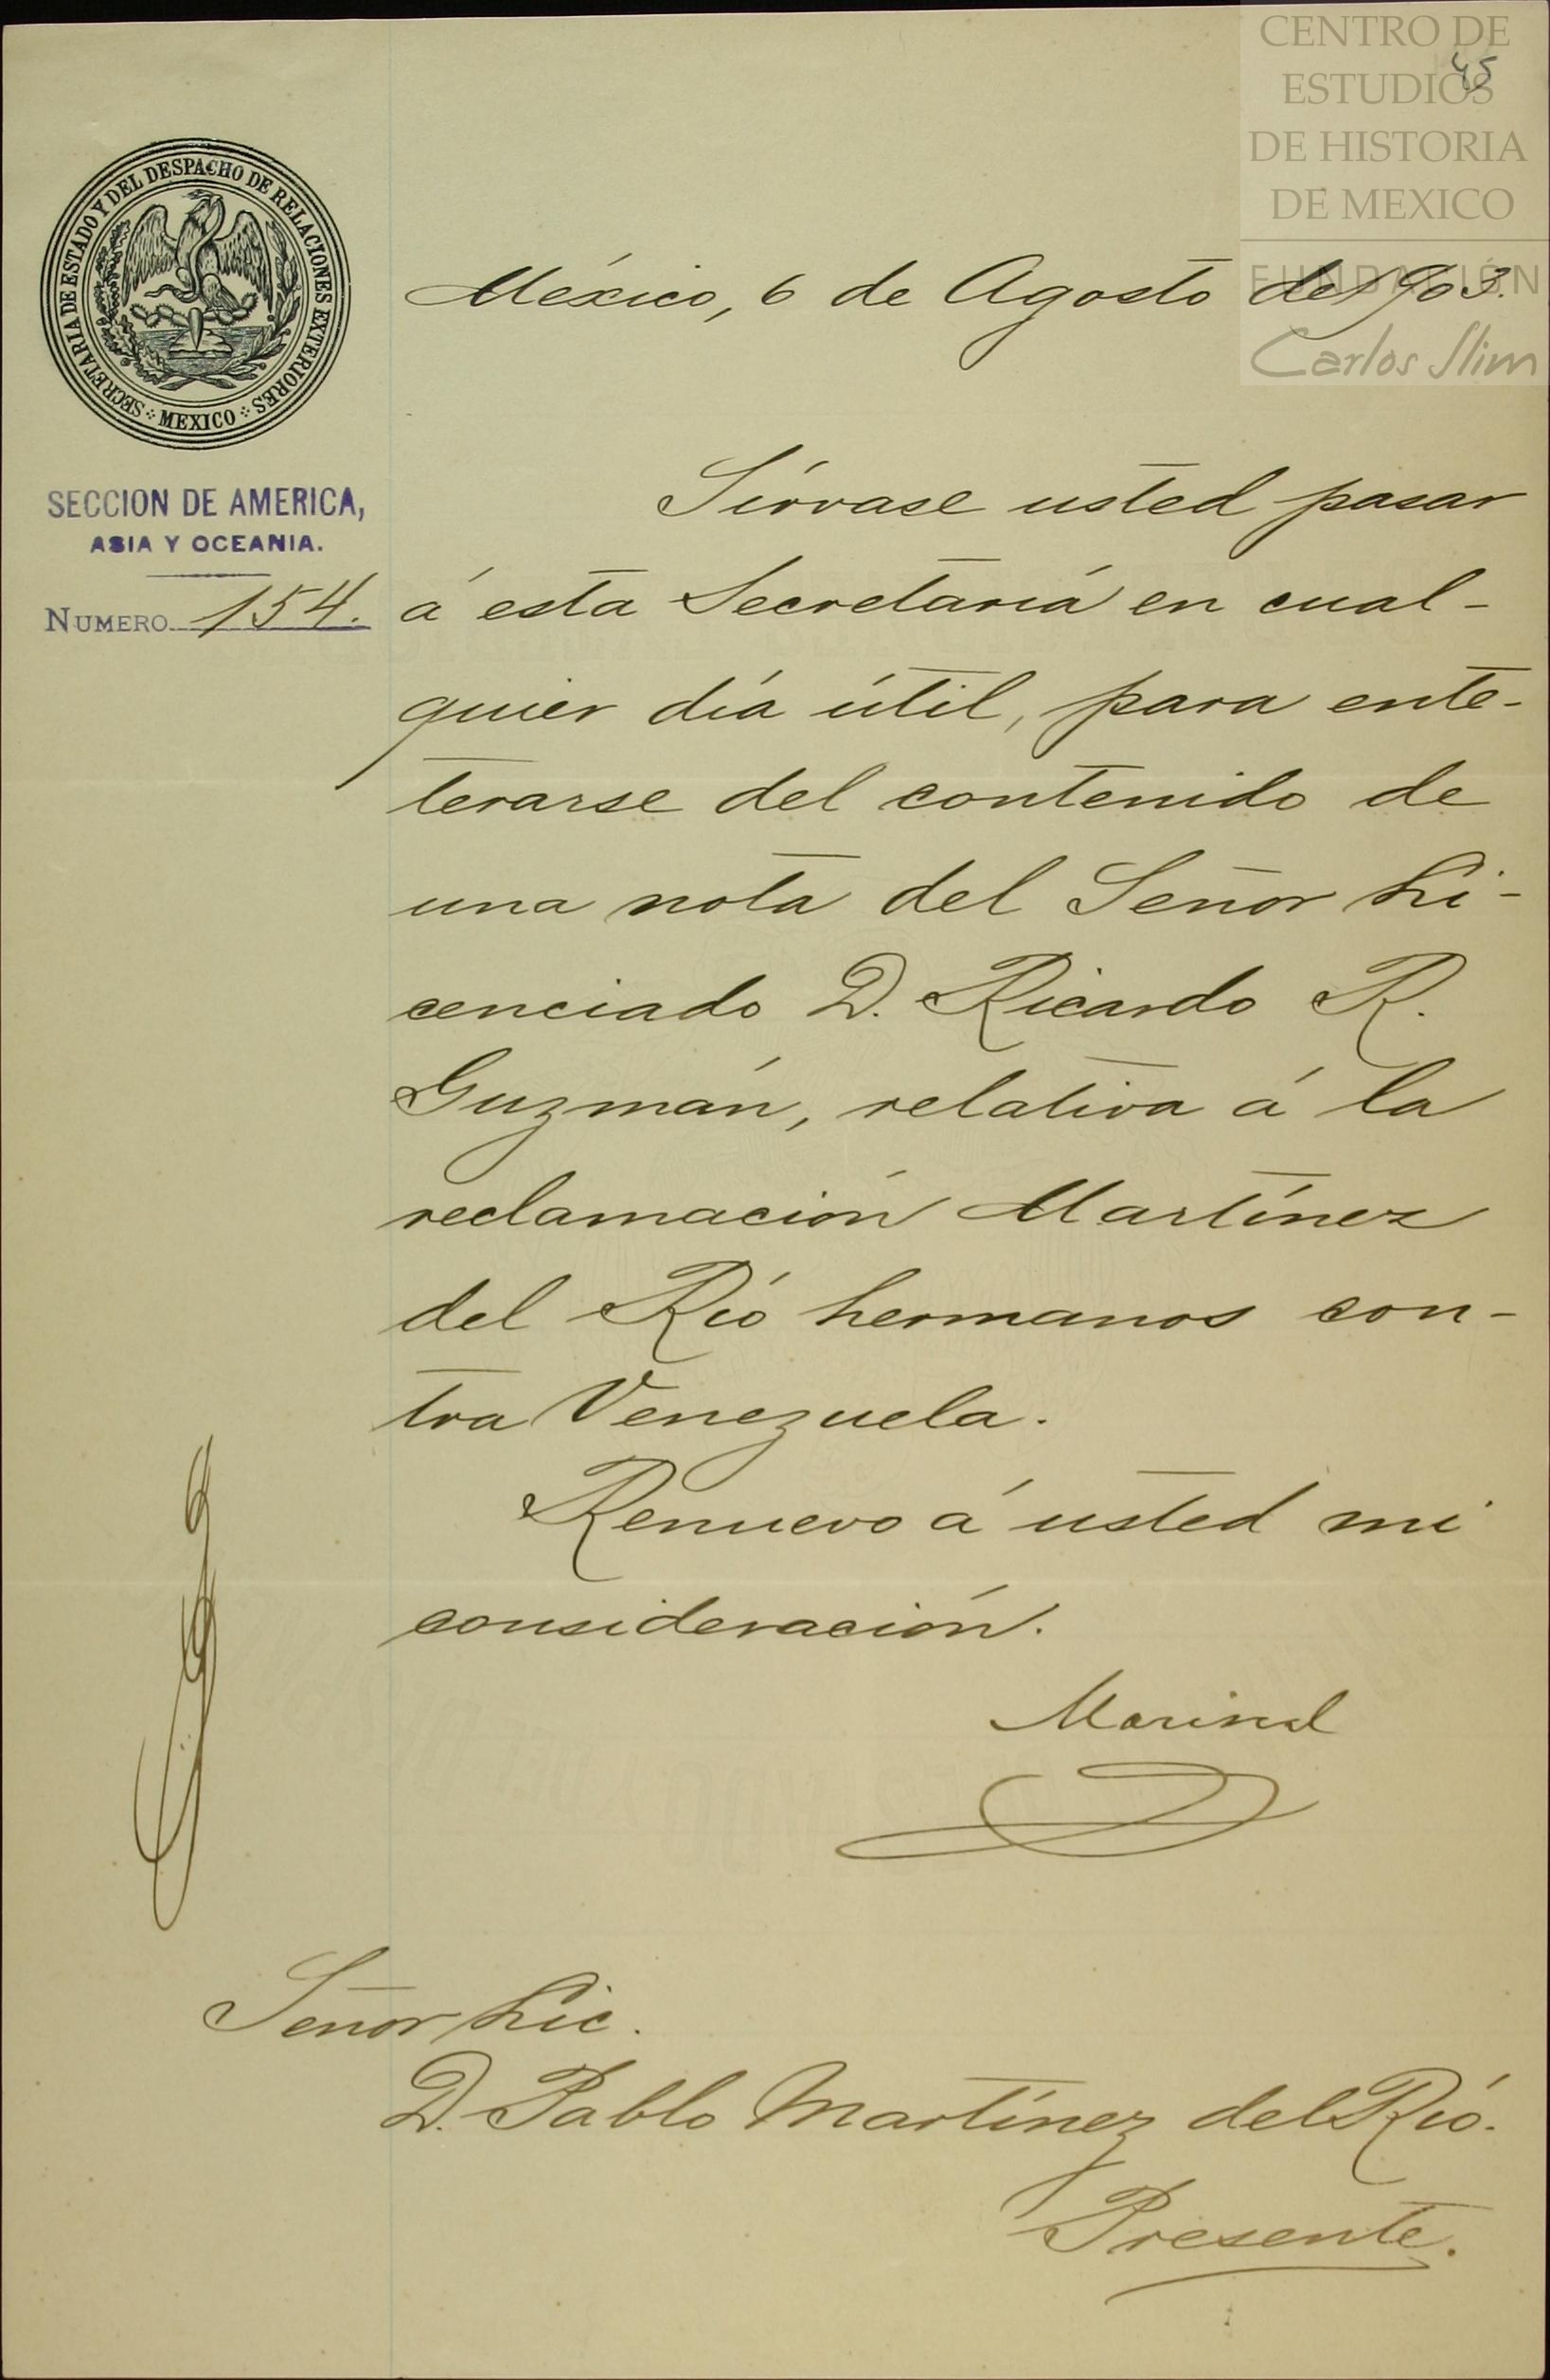 CENTRO DE
ESTUDIOS
DE HISTORIA
DE MEXICO
FUNDACIÓN
Carlos Slim
45
SECRETARIA DE ESTADO Y DEL DESPACHO DE RELACIONES EXTERIORES
MEXICO
México, 6 de Agosto de 1903.
SECCION DE AMERICA,
ASIA Y OCEANIA.
NUMERO 154.
Sírvase usted pasar
á esta Secretaría en cual-
quier día útil, para ente-
terarse del contenido de
una nota del Señor Li-
cenciado D. Ricardo R.
Guzmán, relativa á la
reclamación Martínez
del Río hermanos con-
tra Venezuela.
Renuevo á usted mi
consideración.
Mariscal
Señor Lic.
D. Pablo Martínez del Río.
Presente.